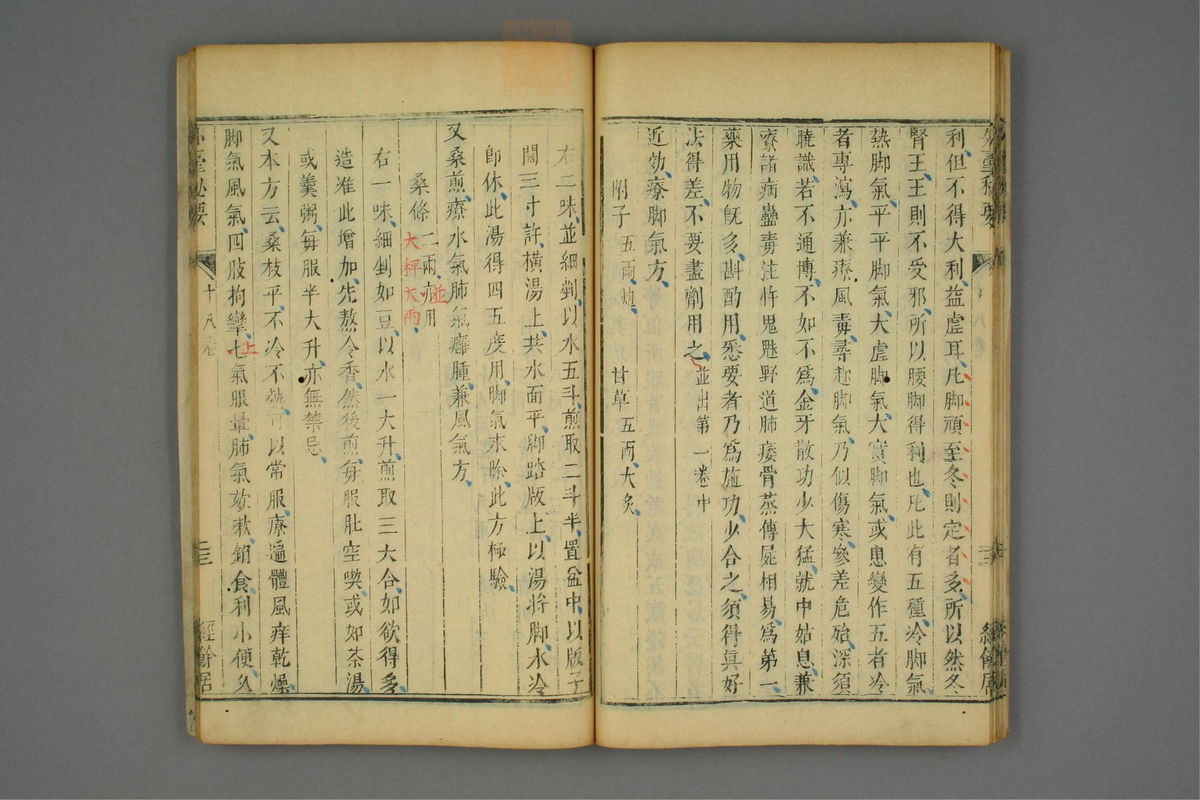 利但不得大利益虛耳凡脚頑至冬則定者多所以然冬
腎王王則不受邪所以腰脚得利也凡此有五種冷脚氣
熱脚氣平平脚氣大虛脚氣大實脚氣或患變作五者冷
者專瀉亦兼療風毒尋赴脚氣乃似傷寒參差危殆深須
曉識若不通博不如不爲金牙散功少大猛就中姑息兼
療諸病蠱毒注忤鬼魅野道肺痿骨蒸傳屍相易爲第一
藥用物旣多斟酌用悉要者乃爲施功少合之須得眞好
法得差不要盡劑用之並出第一卷中
近効療脚氣方
附子五兩炮 甘草五兩大炙
外臺秘要
右二味並細剉以水五斗煎取二斗半置盆中以版子
闊三寸許橫湯上共水面平脚踏版上以湯將脚水冷
卽休此湯得四五度用脚氣未除此方極驗
又桑煎療水氣肺氣癰腫兼風氣方
桑條二兩用
大秤大兩
並
右一味細剉如豆以水一大升煎取三大合如欲得多
造准此增加先熬令香然後煎每服肚空喫或如茶湯
或羹粥每服半大升亦無禁忌
又本方云桑枝平不冷不熱可以常服療遍體風痒乾燥
脚氣風氣四肢拘攣七氣眼暈肺氣欬嗽銷食利小便久
上
十八卷
二三
經餘居